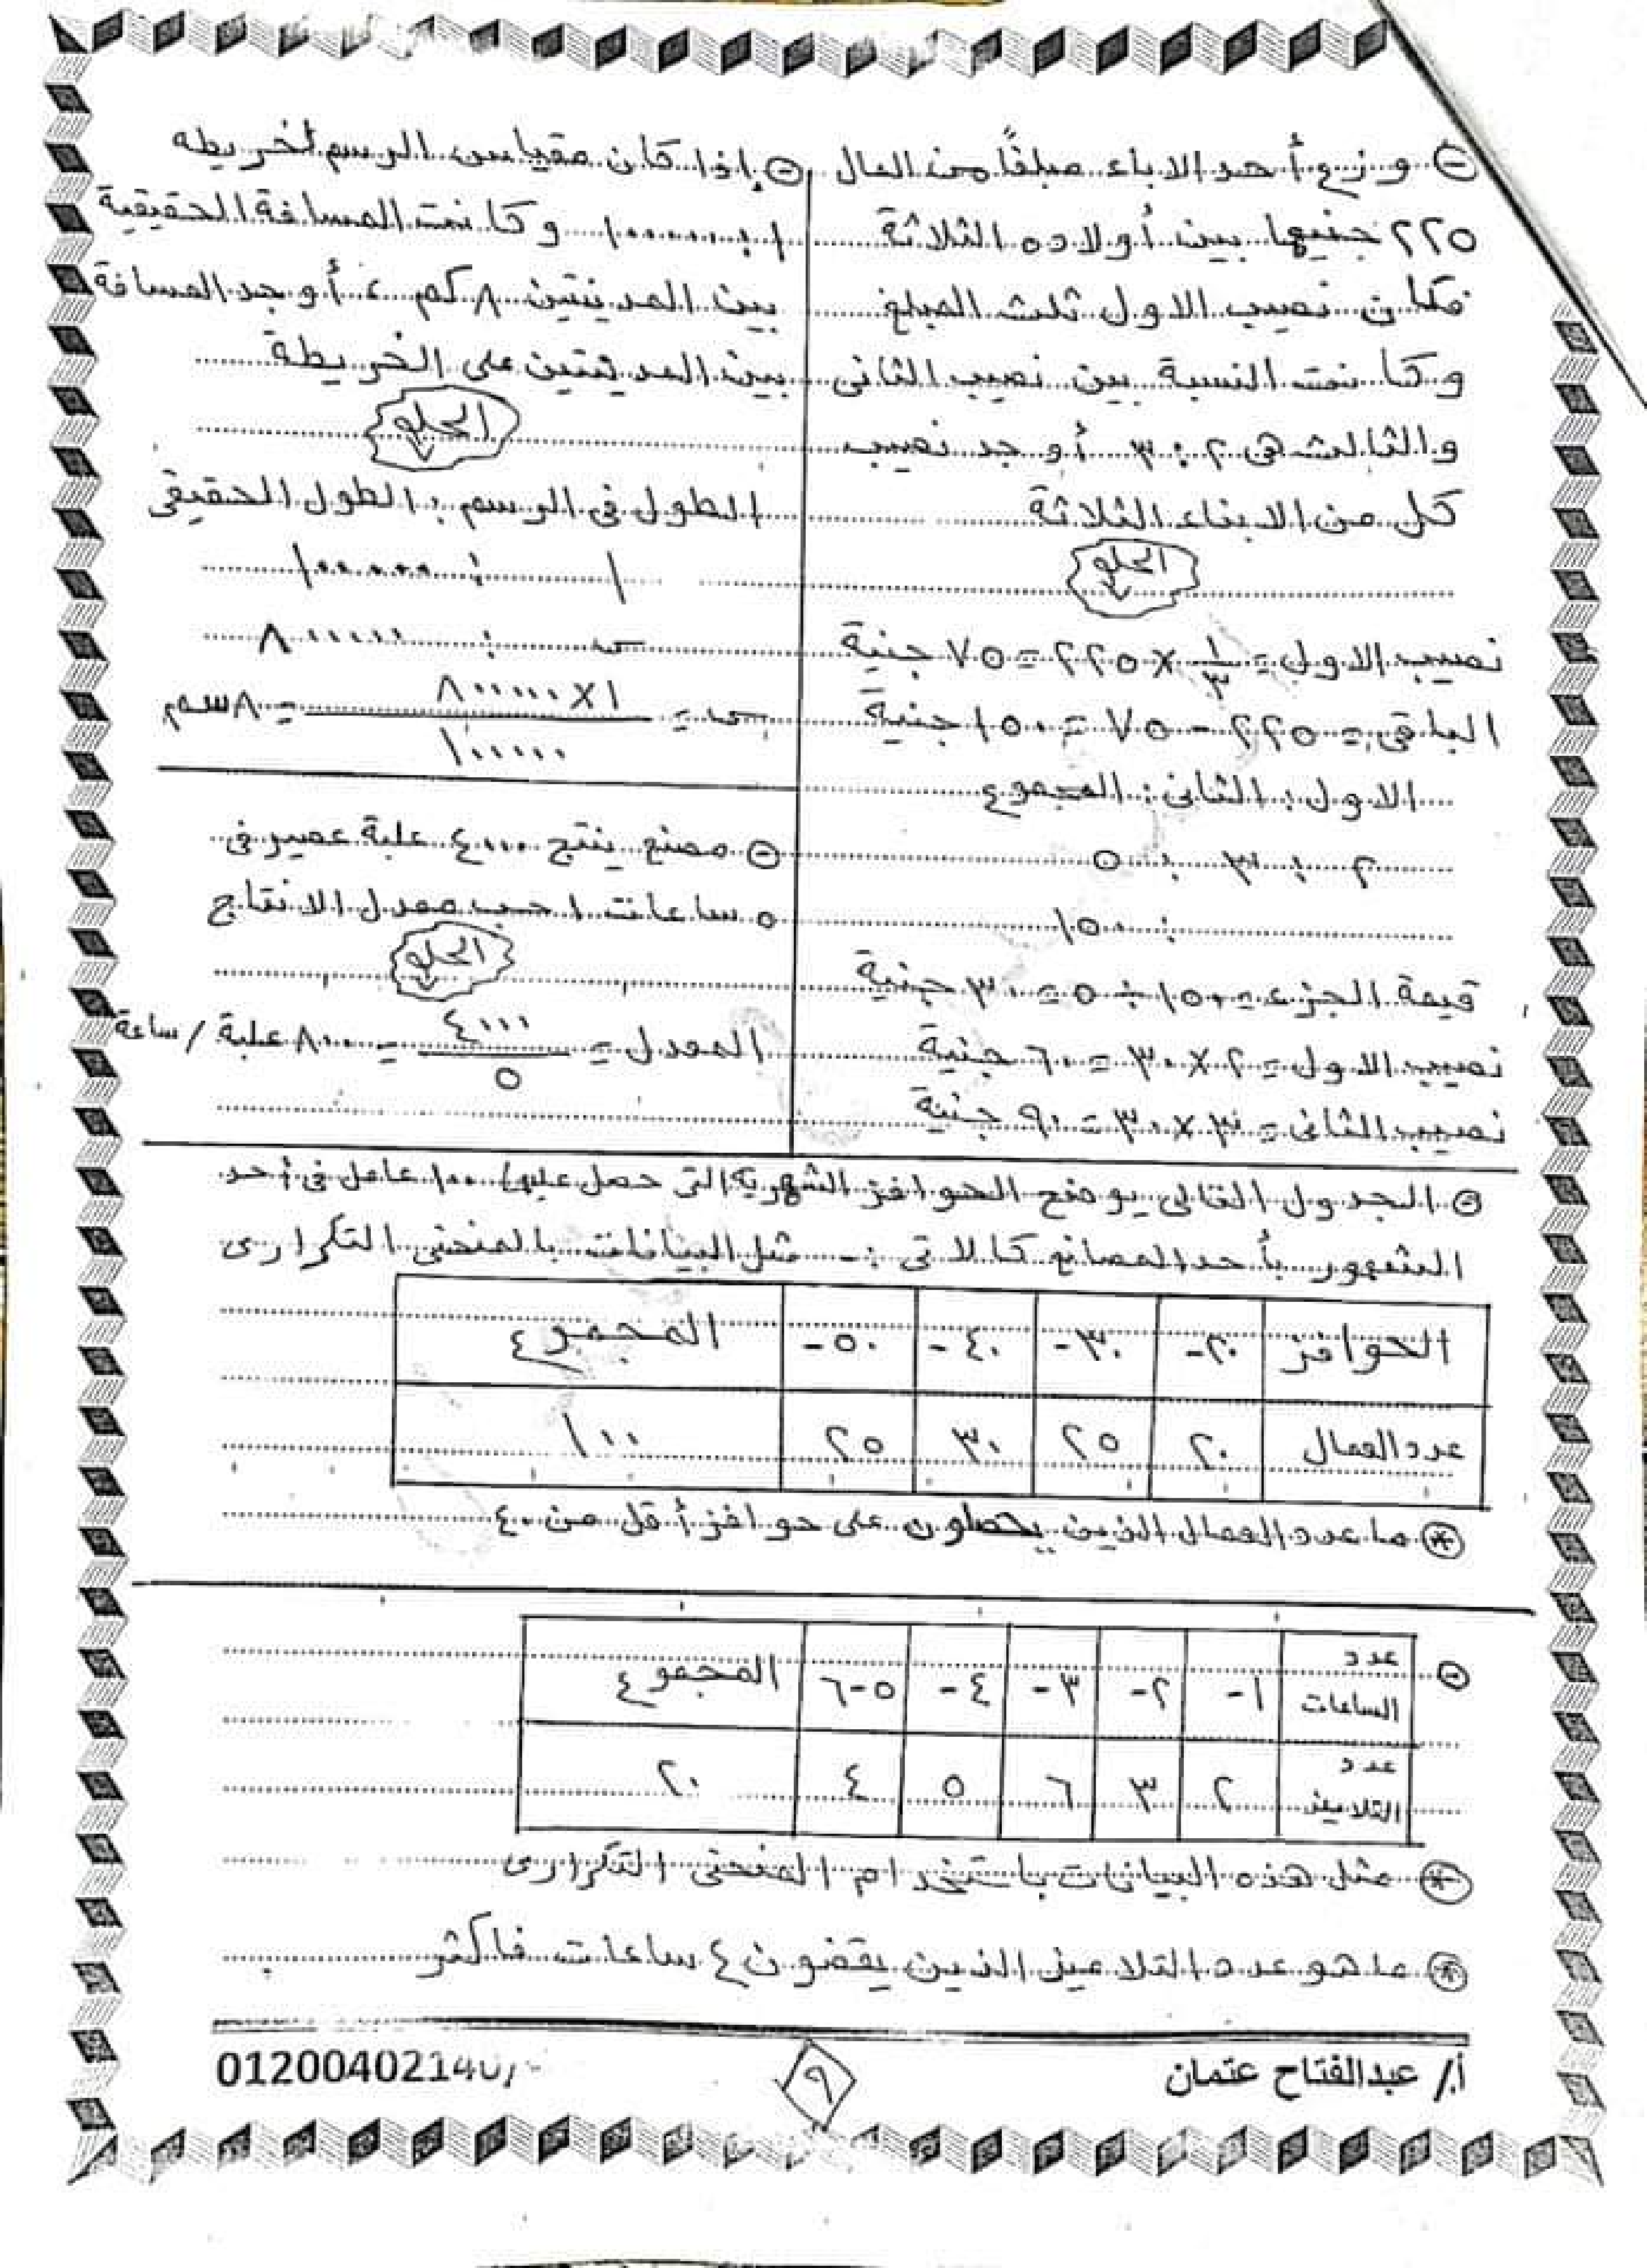 وزع أحد الاباء مبلغاً من المال
٢٢٥ جنيها بين أولاده الثلاثة
فكان نصيب الاول ثلث المبلغ
وكانت النسبة بين نصيب الثانى
والثالث هى ٢ : ٣ أوجد نصيب
كل من الابناء الثلاثة
الحل
نصيب الاول = ١/٣ × ٢٢٥ = ٧٥ جنية
الباقى = ٢٢٥ - ٧٥ = ١٥٠ جنية
الاول : الثانى : المجموع
٢ : ٣ : ٥
: ١٥٠
قيمة الجزء = ١٥٠ ÷ ٥ = ٣٠ جنية
نصيب الاول = ٢ × ٣٠ = ٦٠ جنية
نصيب الثانى = ٣ × ٣٠ = ٩٠ جنية
إذا كان مقياس الرسم لخريطه
١ : ١٠٠٠٠٠ وكانت المسافة الحقيقية
بين المدينتين ٨ كم ، أوجد المسافة
بين المدينتين على الخريطة
الحل
الطول فى الرسم : الطول الحقيقى
١ : ١٠٠٠٠٠
س : ٨٠٠٠٠٠
س = ١ × ٨٠٠٠٠٠ / ١٠٠٠٠٠ = ٨ سم
مصنع ينتج ٤٠٠٠ علبة عصير فى
٥ ساعات احسب معدل الانتاج
الحل
المعدل = ٤٠٠٠ / ٥ = ٨٠٠ علبة / ساعة
الجدول التالى يوضح الحوافز الشهرية التى حصل عليها ١٠٠ عامل فى أحد
الشهور بأحد المصانع كالاتى :- مثل البيانات بالمنحنى التكرارى
الحوافز ٢٠- ٣٠- ٤٠- ٥٠- المجموع
عدد العمال ٢٠ ٢٥ ٣٠ ٢٥ ١٠٠
* ما عدد العمال الذين يحصلون على حوافز أقل من ٤٠
عدد الساعات ١- ٢- ٣- ٤- ٥-٦ المجموع
عدد التلاميذ ٢ ٣ ٦ ٥ ٤ ٢٠
* مثل هذه البيانات باستخدام المنحنى التكرارى
* ما هو عدد التلاميذ الذين يقضون ٤ ساعات فاكثر
أ/ عبدالفتاح عتمان
٩